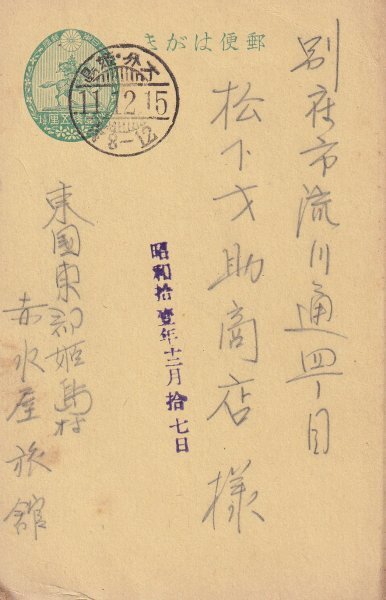 郵便はがき
大分・姫島
11.12.15
8-12
別府市流川通四丁目
松下才助商店様
昭和拾壹年十二月拾七日
東國東郡姫島村
赤水屋旅館